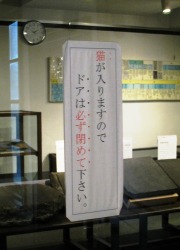 猫が入りますので
ドアは必ず閉めて下さい。